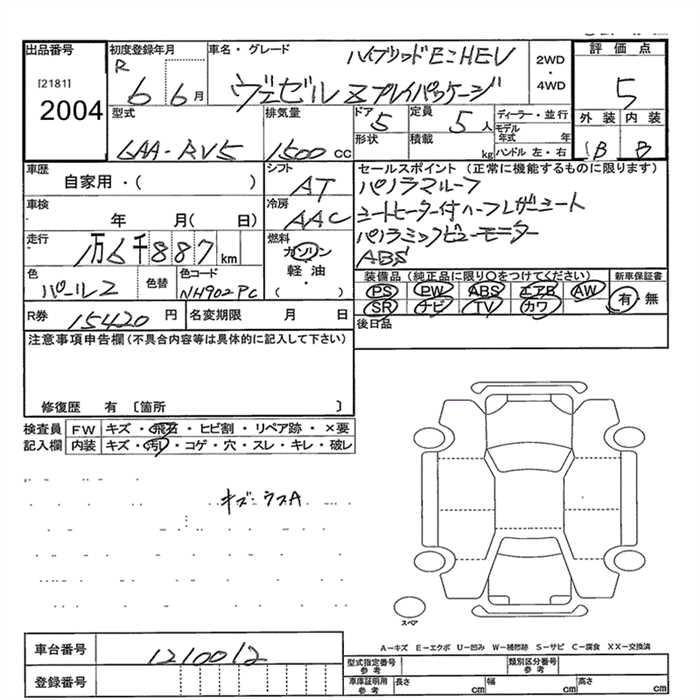 出品番号
[2181]
2004
初度登録年月
R 6 6月
車名・グレード
ハイブリッドE:HEV
ヴェゼル Zプレイパッケージ
2WD
・
4WD
評価点
5
外装 内装
B B
型式
6AA-RV5
排気量
1500 cc
ドア 5
形状
定員 5人
積載 kg
ディーラー・並行
モデル年式 年
ハンドル 左・右
車歴
自家用・( )
シフト
AT
車検
年 月( 日)
冷房
AAC
走行
万6千887 km
燃料
ガソリン
軽油
( ・ )
色
パール2
色替
色コード
NH902PC
R券 15420 円
名変期限 月 日
セールスポイント (正常に機能するものに限ります)
パノラマルーフ
シートヒーター付ハーフレザーシート
パノラミックビューモニター
ABS
装備品(純正品に限り〇をつけてください)
PS PW ABS エアB AW
SR ナビ TV カワ
新車保証書
有・無
後日品
注意事項申告欄(不具合内容等は具体的に記入して下さい)
修復歴 有 〔箇所 〕
検査員記入欄
FW キズ・飛石・ヒビ割・リペア跡・×要
内装 キズ・汚レ・コゲ・穴・スレ・キレ・破レ
キズ・ウスA
スペア
A-キズ E-エクボ U-凹み W-補修跡 S-サビ C-腐食 XX-交換済
車台番号 1210012
登録番号
型式指定番号 参考
類別区分番号 参考
車庫証明用 参考 長さ cm 幅 cm 高さ cm